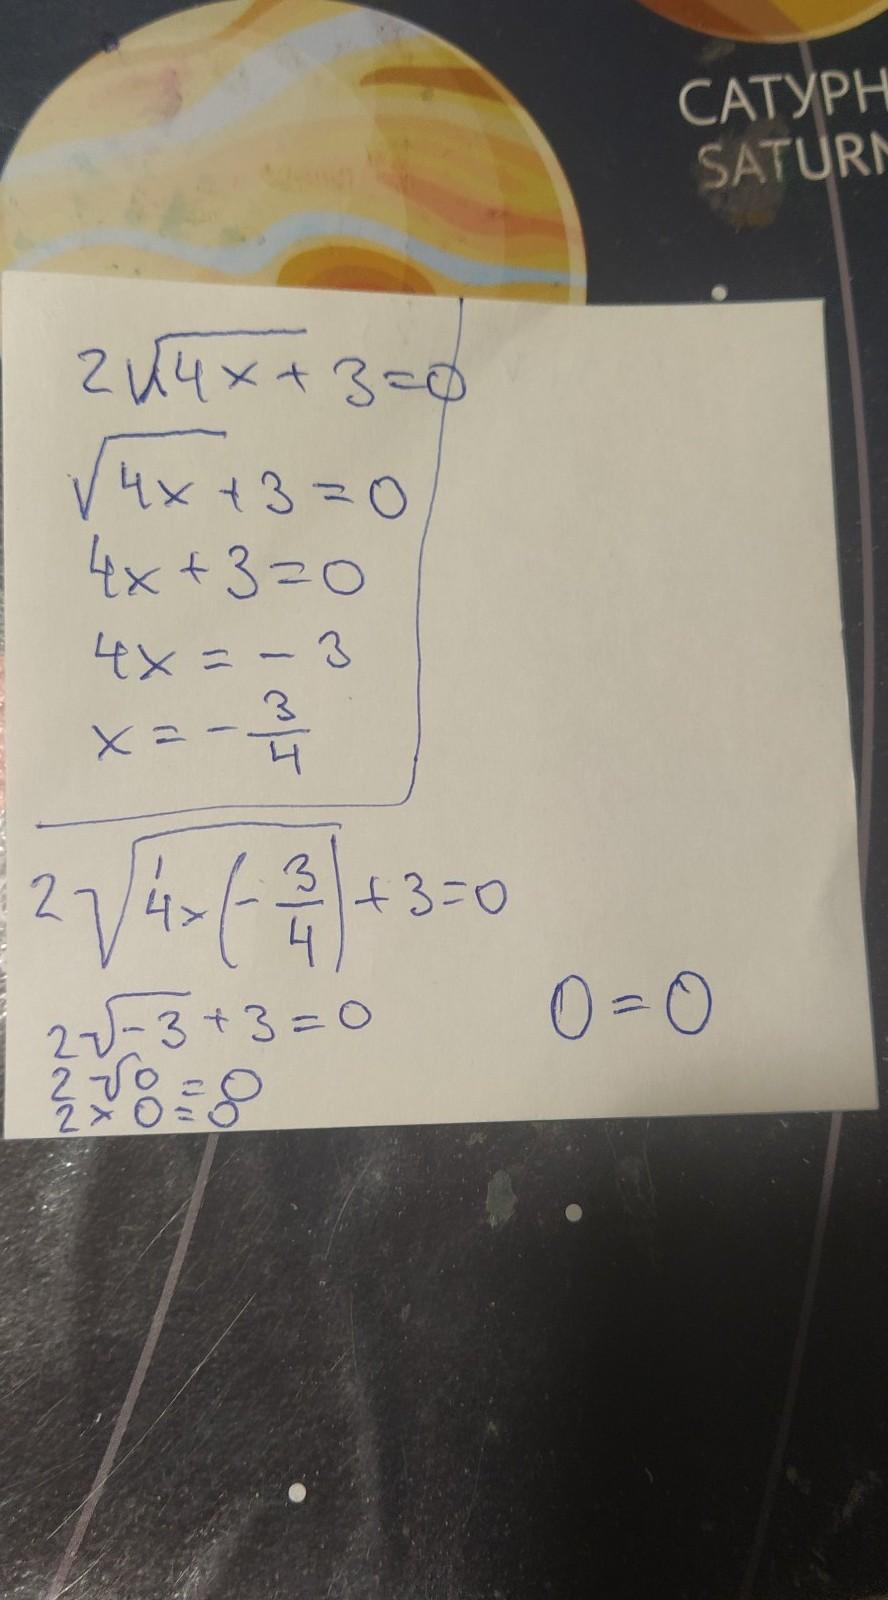 САТУРН
SATURN
2√4x + 3 = 0
√4x + 3 = 0
4x + 3 = 0
4x = - 3
x = - 3/4
2√4x(- 3/4) + 3 = 0
2√-3 + 3 = 0
0 = 0
2√0 = 0
2 x 0 = 0